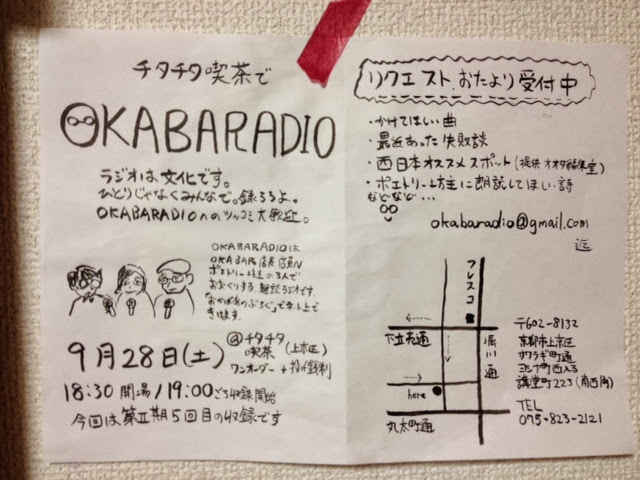 チタチタ喫茶で
OKABARADIO
ラジオは文化です。
ひとりじゃなくみんなで。録ろうよ。
OKABARADIOへのツッコミ大歓迎。
OKABARADIOは
OKABAR店長、店員N
ポエトリー坊主の3人で
おおくりする雑談ラジオです。
「おかばあのぶろぐ」でネット上で
きけます。
9月28日(土)
@チタチタ
喫茶(上京区)
ワンオーダー+投げ銭制
18:30開場/19:00ごろ収録開始
今回は第五期5回目の収録です
リクエスト、おたより受付中
・かけてほしい曲
・最近あった失敗談
・西日本オススメスポット(提供 オオタ編集室)
・ポエトリー坊主に朗読してほしい詩
などなど…
okabaradio@gmail.com
迄
フレスコ
下立売通
堀川通
here
丸太町通
〒602-8132
京都市上京区
サワラギ町通
ヨシヤ町西入る
講堂町223(南西角)
TEL
075-823-2121